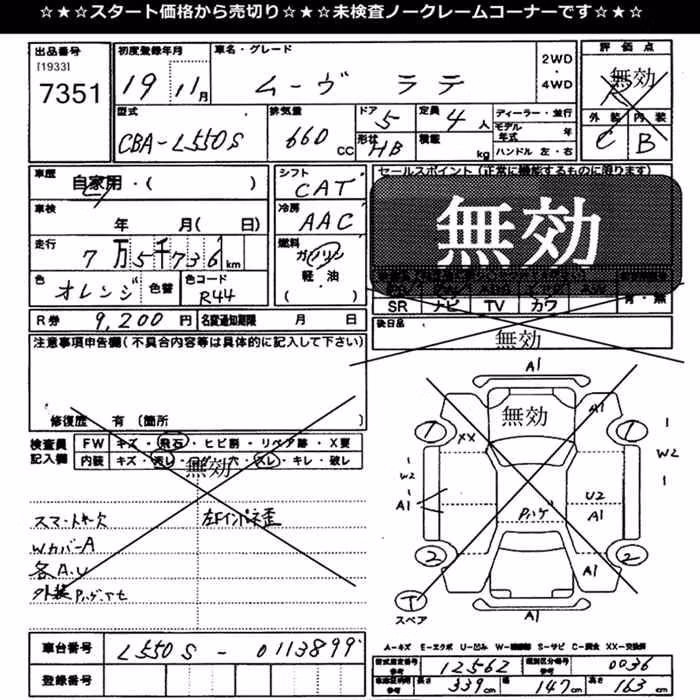 ☆★☆スタート価格から売切り☆★☆未検査ノークレームコーナーです☆★☆
出品番号
[1933]
7351
初度登録年月
19 11月
車名・グレード
ムーヴ ラテ
2WD
・
4WD
評価点
無効
R
外装 内装
C B
型式
CBA-L550S
排気量
660 CC
ドア 5
形状 HB
定員 4 人
積載 kg
ディーラー・並行
モデル年式 年
ハンドル 左・右
車歴
自家用・( )
車検
年 月( 日)
走行
7万5千736km
色
オレンジ
色替
色コード
R44
シフト
CAT
冷房
AAC
燃料
ガソリン
軽・油
( )
セールスポイント(正常に機能するものに限ります)
無効
SR ナビ TV カワ
有・無
R券 9,200円
名変通知期限 月 日
後日品
無効
注意事項申告欄(不具合内容等は具体的に記入して下さい)
修復歴 有〔箇所 〕
検査員
記入欄
FW キズ・飛石・ヒビ割・リペア跡・X要
内装 キズ・汚レ・コゲ・穴・スレ・キレ・破レ
無効
スマートキー欠
左Fインパネ歪
WカバーA
各A.U
A1
無効
A1
1
1
XX
1
W2
1
A1
1
W2
1
U2
A1
2
2
A1
T
スペア
A1
A-キズ E-エクボ U-凹み S-サビ XX-交換済
車台番号
L550S-0113899
登録番号
型式指定番号
参考
12562
類別区分番号
参考
0036
参考
長さ 339cm
幅 147cm
高さ 163cm